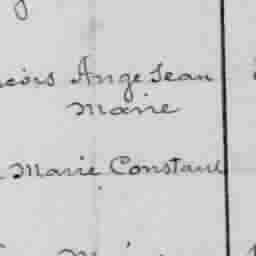 Ange Jean
Marie
Marie Constant